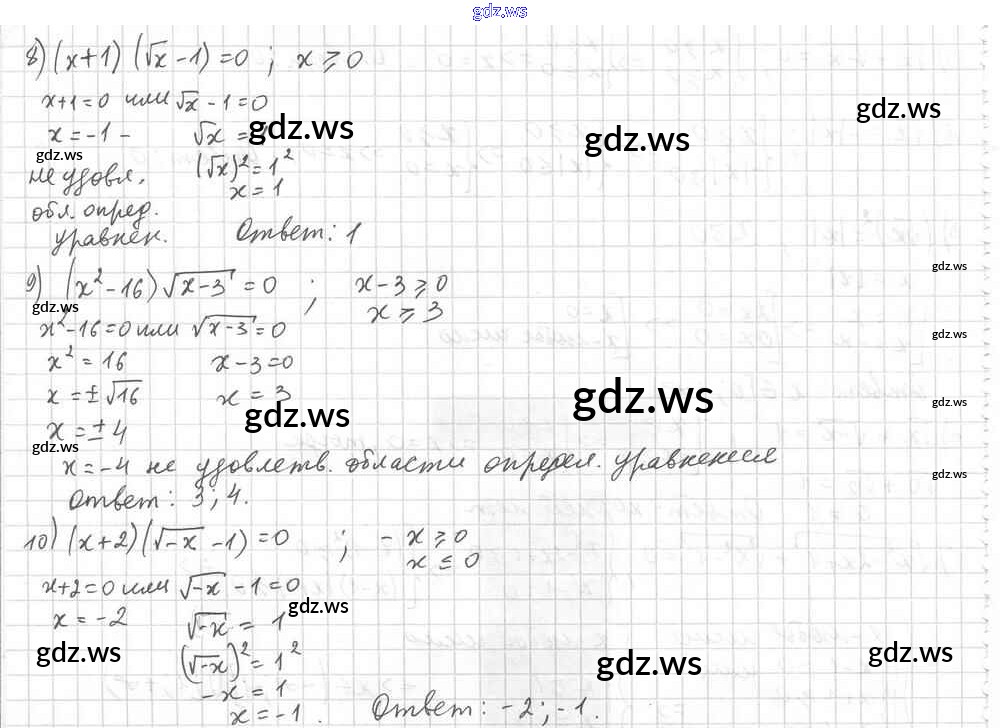 gdz.ws
8) (x+1) (√x -1) =0 ; x ⩾ 0
x+1=0 или √x -1=0
gdz.ws
x = -1 - √x = gdz.ws
gdz.ws
gdz.ws
не удовл. (√x)² = 1²
x = 1
обл. опред.
уравнен. Ответ: 1
9) (x²-16) √x-3 = 0 ; x-3 ⩾ 0
gdz.ws
gdz.ws
x ⩾ 3
x²-16=0 или √x-3 = 0
gdz.ws
x² = 16 x-3=0
x = ±√16 x = 3
gdz.ws
gdz.ws
gdz.ws
x = ± 4
gdz.ws
x = -4 не удовлетв. области определ. уравнения
gdz.ws
Ответ: 3; 4.
10) (x+2) (√-x -1) =0 ; -x ⩾ 0
x ⩽ 0
x+2=0 или √-x -1=0
gdz.ws
x = -2 √-x = 1
(√-x)² = 1²
gdz.ws
gdz.ws
gdz.ws
-x = 1
x = -1 . Ответ: -2; -1.